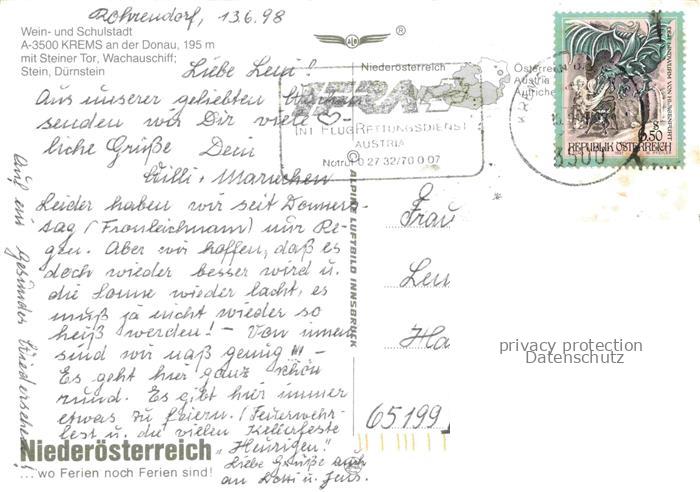 Rohrendorf, 13.6.98
Wein- und Schulstadt
A-3500 KREMS an der Donau, 195 m
mit Steiner Tor, Wachauschiff;
Stein, Dürnstein
Liebe Leni!
Aus unserer geliebten Wachau
senden wir Dir viele
liche Grüße Dein
Willi + Mariechen
Leider haben wir seit Donners-
tag (Fronleichnam) nur Re-
gen. Aber wir hoffen, daß es
doch wieder besser wird u.
die Sonne wieder lacht, es
muß ja nicht wieder so
heiß werden! - Von innen
sind wir naß genug!!! -
Es geht hier ganz schön
rund. Es gibt hier immer
etwas zu feiern. (Feuerwehr-
fest u. die vielen Kellerfeste
"Heurigen"
Liebe Grüße auch
an u. Jens.
Auf ein Gesundes Wiedersehen!
Niederösterreich
... wo Ferien noch Ferien sind!
AD
®
Niederösterreich
Österreich
Austria
Autriche
INT. FLUGRETTUNGSDIENST
AUSTRIA
Notruf 0 27 32/70 0 07
3500
6.50
REPUBLIK ÖSTERREICH
ALPINE LUFTBILD INNSBRUCK
Frau
Len
Ha
65199
privacy protection
Datenschutz